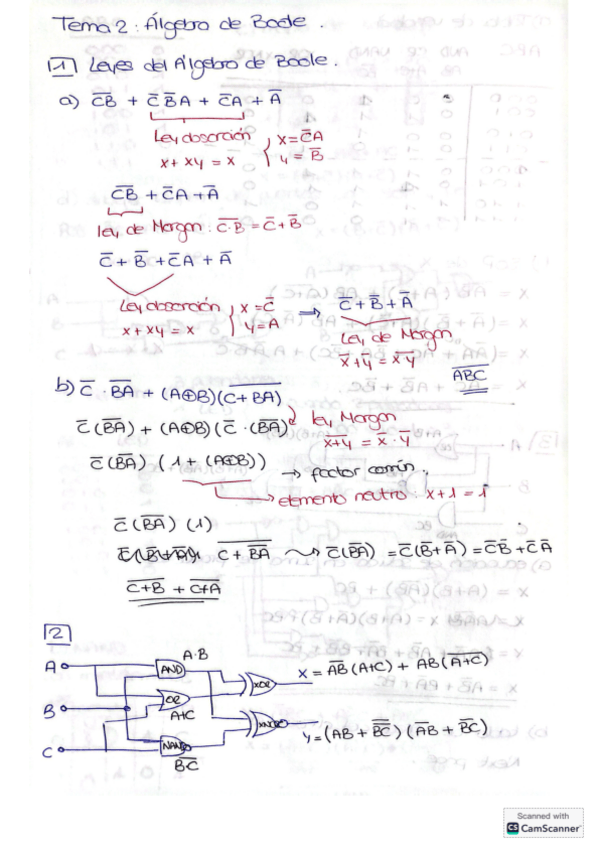 Tema 2: Álgebra de Boole.
1 Leyes del Álgebra de Boole.
a) C̅B̅ + C̅ B̅ A + C̅A + A̅
Ley absorción { x = C̅A
x + xy = x { y = B̅
C̅B̅ + C̅A + A̅
ley de Morgan: \overline{C·B} = C̅ + B̅
C̅ + B̅ + C̅A + A̅
Ley absorción { x = C̅ → C̅ + B̅ + A̅
x + xy = x { y = A Ley de Morgan
x̅ + y̅ = \overline{x·y}
\overline{ABC}
b) C̅ · \overline{BA} + (A⊕B)(\overline{C + BA})
C̅ (\overline{BA}) + (A⊕B)(C̅ · (\overline{BA}) ley Morgan
\overline{x+y} = x̅ · y̅
C̅ (\overline{BA}) (1 + (A⊕B)) → factor común.
→ elemento neutro: x + 1 = 1
C̅ (\overline{BA}) (1)
\overline{C + BA} ⤳ C̅(\overline{BA}) = C̅(B̅ + A̅) = C̅B̅ + C̅ A̅
\overline{C+B} + \overline{C+A}
2
A·B
A AND XOR x = \overline{AB} (A+C) + AB (\overline{A+C})
B OR
A+C
XNOR y = (AB + \overline{\overline{BC}}) (\overline{AB} + \overline{BC})
C NAND
\overline{BC}
Scanned with
CS CamScanner